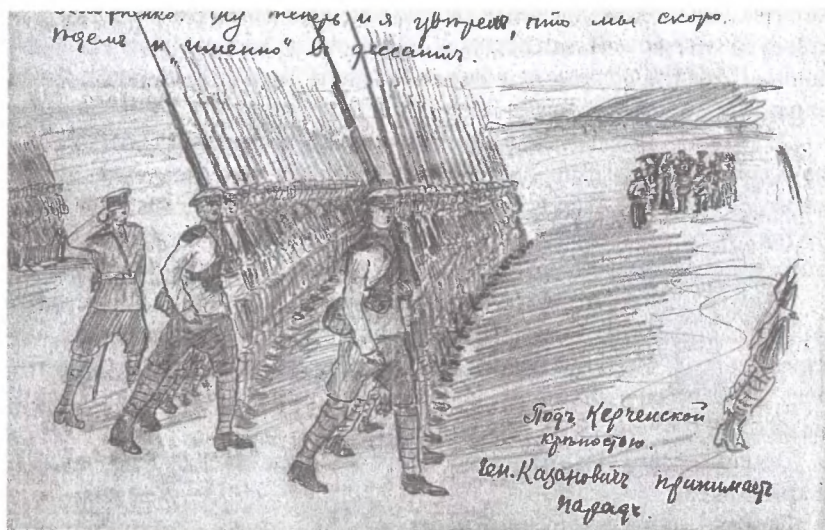 ну теперь и я увѣренъ, что мы скоро.
ѣдемъ и „именно“ въ дессантъ.
Подъ Керченской
крѣпостью.
Ген. Казановичъ принимаетъ
парадъ.